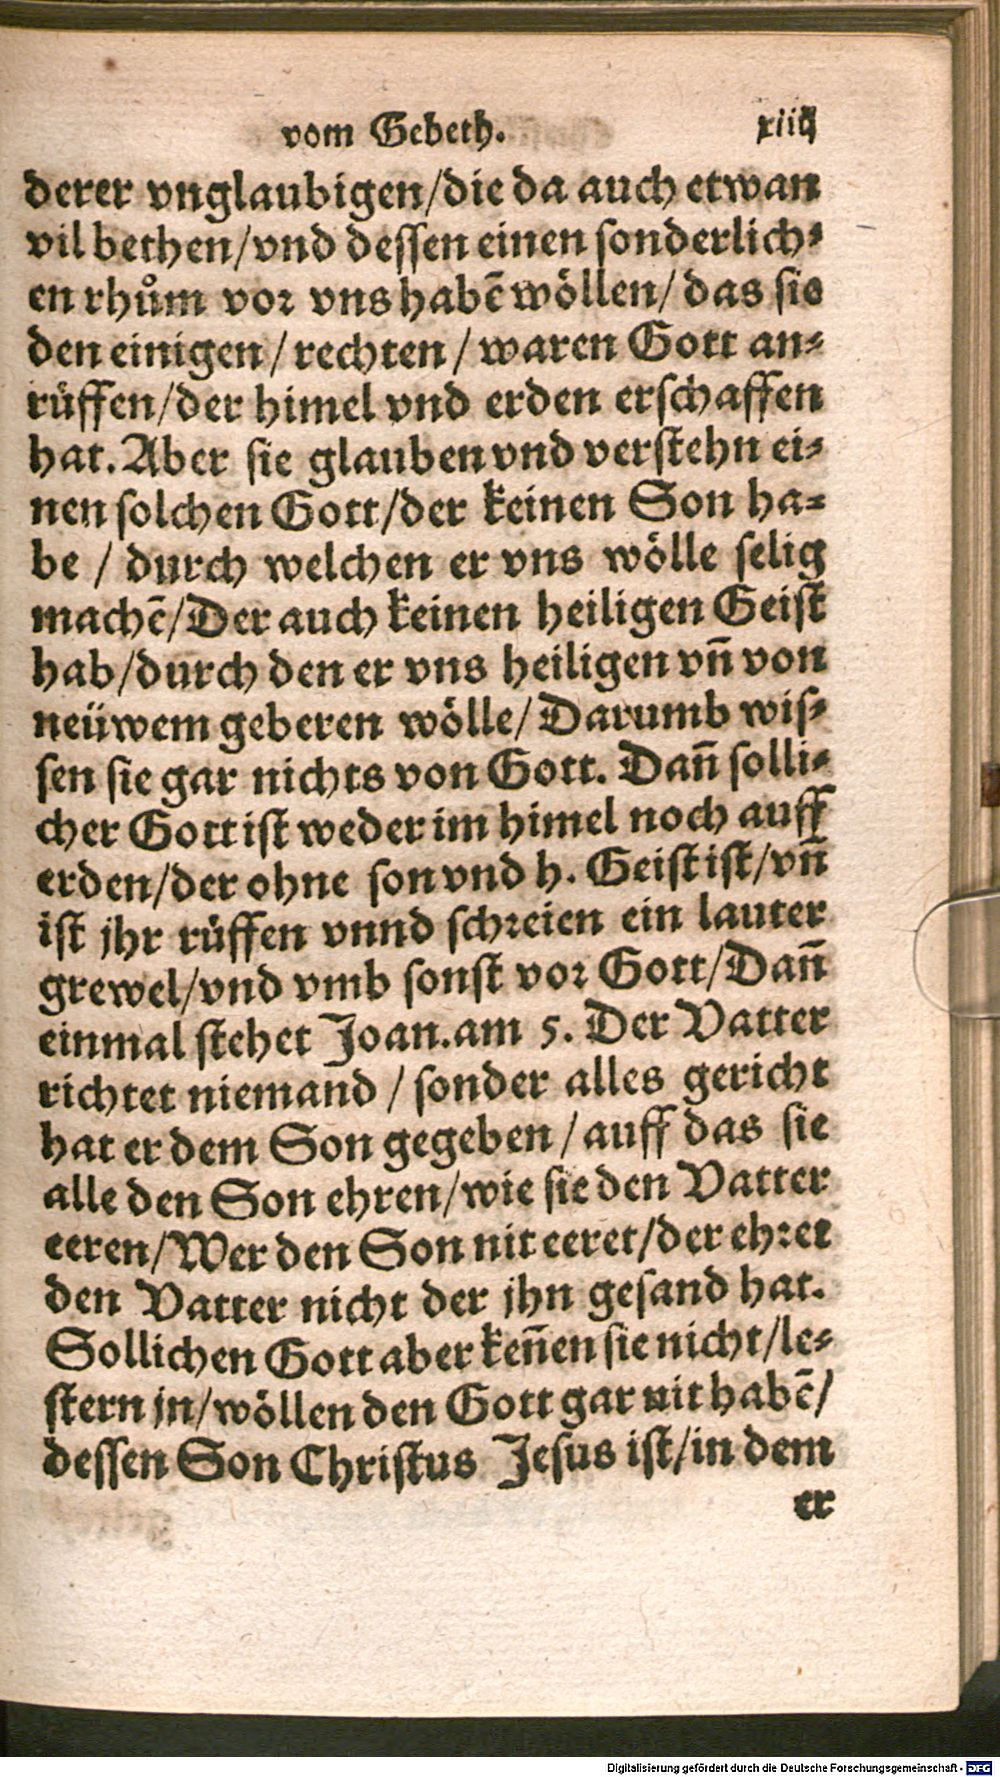 vom Gebeth. xiiij
derer vnglaubigen/die da auch etwan
vil bethen/vnd dessen einen sonderlich⸗
en rhům vor vns habē wöllen/ das sie
den einigen / rechten / waren Gott an⸗
rüffen/der himel vnd erden erschaffen
hat. Aber sie glauben vnd verstehn ei⸗
nen solchen Gott/der keinen Son ha⸗
be / durch welchen er vns wölle selig
machē/Der auch keinen heiligen Geist
hab/durch den er vns heiligen vn̄ von
neüwem geberen wölle/ Darumb wis⸗
sen sie gar nichts von Gott. Dan̄ solli⸗
cher Gott ist weder im himel noch auff
erden/der ohne son vnd h. Geist ist/vn̄
ist jhr rüffen vnnd schreien ein lauter
grewel/vnd vmb sonst vor Gott/Dan̄
einmal stehet Joan.am 5. Der Vatter
richtet niemand / sonder alles gericht
hat er dem Son gegeben / auff das sie
alle den Son ehren/wie sie den Vatter
eeren/Wer den Son nit eeret/der ehret
den Vatter nicht der jhn gesand hat.
Sollichen Gott aber ken̄en sie nicht/le⸗
stern jn/wöllen den Gott gar nit habē/
dessen Son Christus Jesus ist/in dem
er
Digitalisierung gefördert durch die Deutsche Forschungsgemeinschaft - DFG